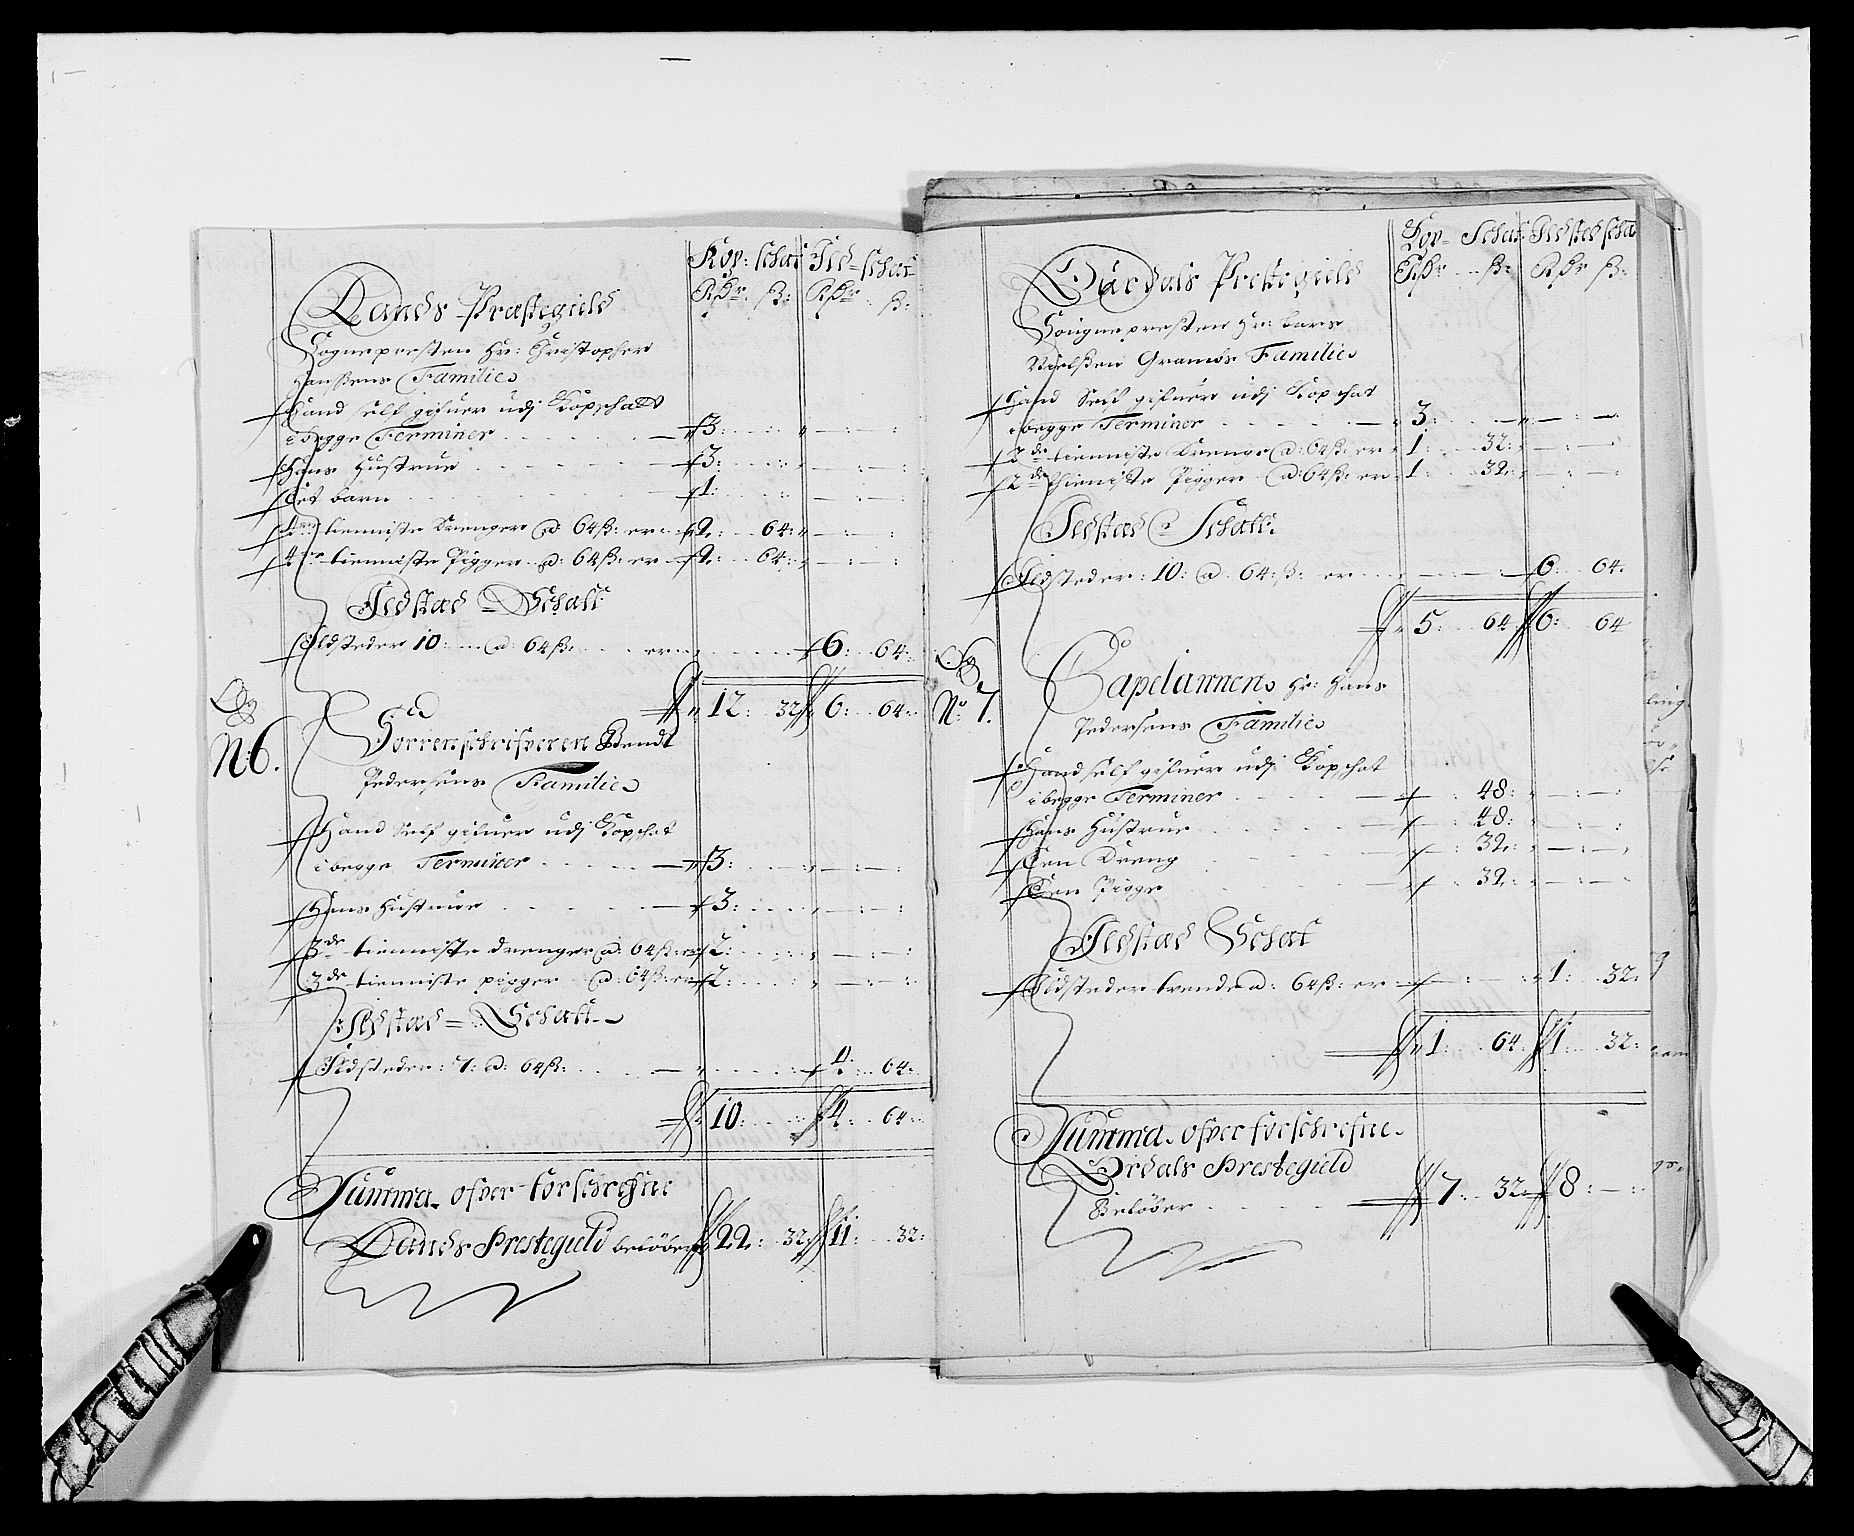 Kop: schat Ild-schat
Rdr ß: Rdr ß:
Lands Præstegield
Sognepresten Hr: Christopher
Hanßens Familie
Hand self gifuer udj Kopschatt
i begge Terminer 3:
Hans Hustrue 3:
Eet barn 1:
4re tienniste Drenger a 64ß: er 2: 64:
4re tienniste Pigger a: 64ß: er 2: 64:
Ildstæd Schatt
Ildsteder 10: a: 64ß: er 6: 64:
12: 32 6: 64:
No 6.
Sorrenschrifveren Bendt
Pedersens Familie
Hand Self gifuer udj Kopschat
i begge Terminer 3:
Hans Hustrue 3:
3de tienniste drenger a: 64ß: er 2:
3de tienniste pigger a: 64ß: er 2:
Ildstæd Schatt
Ildsteder: 7: a: 64ß: 4: 64:
10: 4: 64:
Summa ofver forschrefne
Lands Prestegield beløber 22: 32: 11: 32:
Kop Schat Ildsted schat
Rdr ß: Rdr ß:
Urdals Prestegield
Sougnepresten Hr: Lars
Nielßen Grams Familie
Hand Self gifuer udj Kopschat
i begge Terminer 3:
2de tienniste Drenge a: 64ß: er 1: 32:
2de thieniste Pigger a: 64ß: er 1: 32:
Ildstæd Schatt
Ildsteder: 10: a 64: ß: er 6: 64:
5: 64 6: 64
No 7.
Capelannens Hr: Hans
Pedersens Familie
Hand self gifuer udj Kopschat
i begge Terminer 48:
Hans Hustrue 48:
Een Dreng 32:
Een Pigge 32:
Ildstæd Schat
Ildsteder trende a: 64ß: er 1: 32:
1: 64: 1: 32:
Summa ofver forschrefne
Urdals Prestegield
Beløber 7: 32: 8: